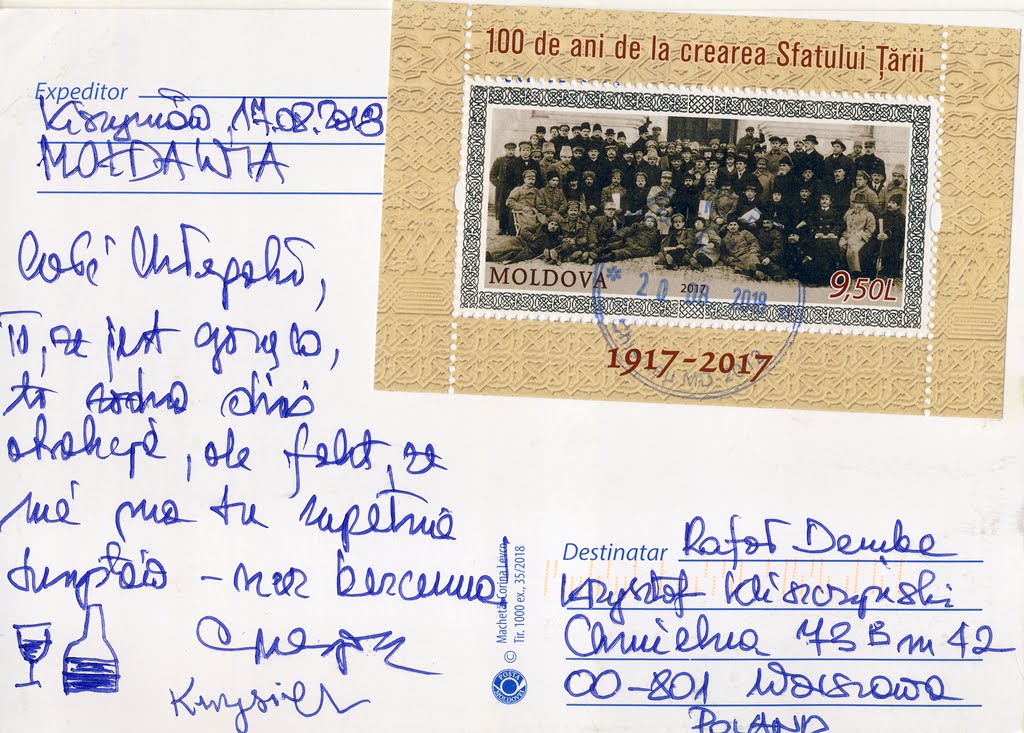 100 de ani de la crearea Sfatului Țării
MOLDOVA
2017
9,50L
20 08 2018
1917-2017
MD-20
Expeditor
Kiszyniów, 17.08.2018
MOŁDAWIA
To, że jest gorąco,
to
atrakcja, ale fakt, że
nie ma tu zupełnie
turystów – rzecz bezcenna
Krzysiek
Macheta: Corina Levco
Tir. 1000 ex., 35/2018
©
POȘTA
MOLDOVEI
Destinatar Rafał Dembe
Krzysztof
Chmielna 73B m 42
00-801 Warszawa
POLAND